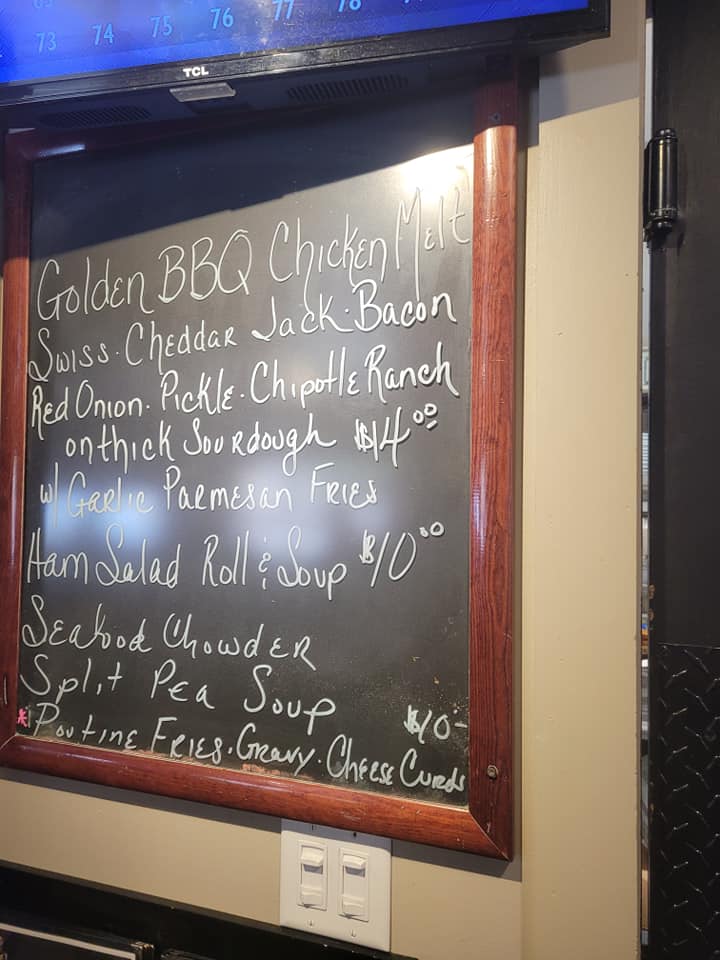 73 74 75 76 77 78
TCL
Golden BBQ Chicken Melt
Swiss · Cheddar Jack · Bacon
Red Onion · Pickle · Chipotle Ranch
on thick Sourdough $14.00
w/ Garlic Parmesan Fries
Ham Salad Roll & Soup $10.00
Seafood Chowder
Split Pea Soup
$10-
* Poutine Fries · Gravy · Cheese Curds